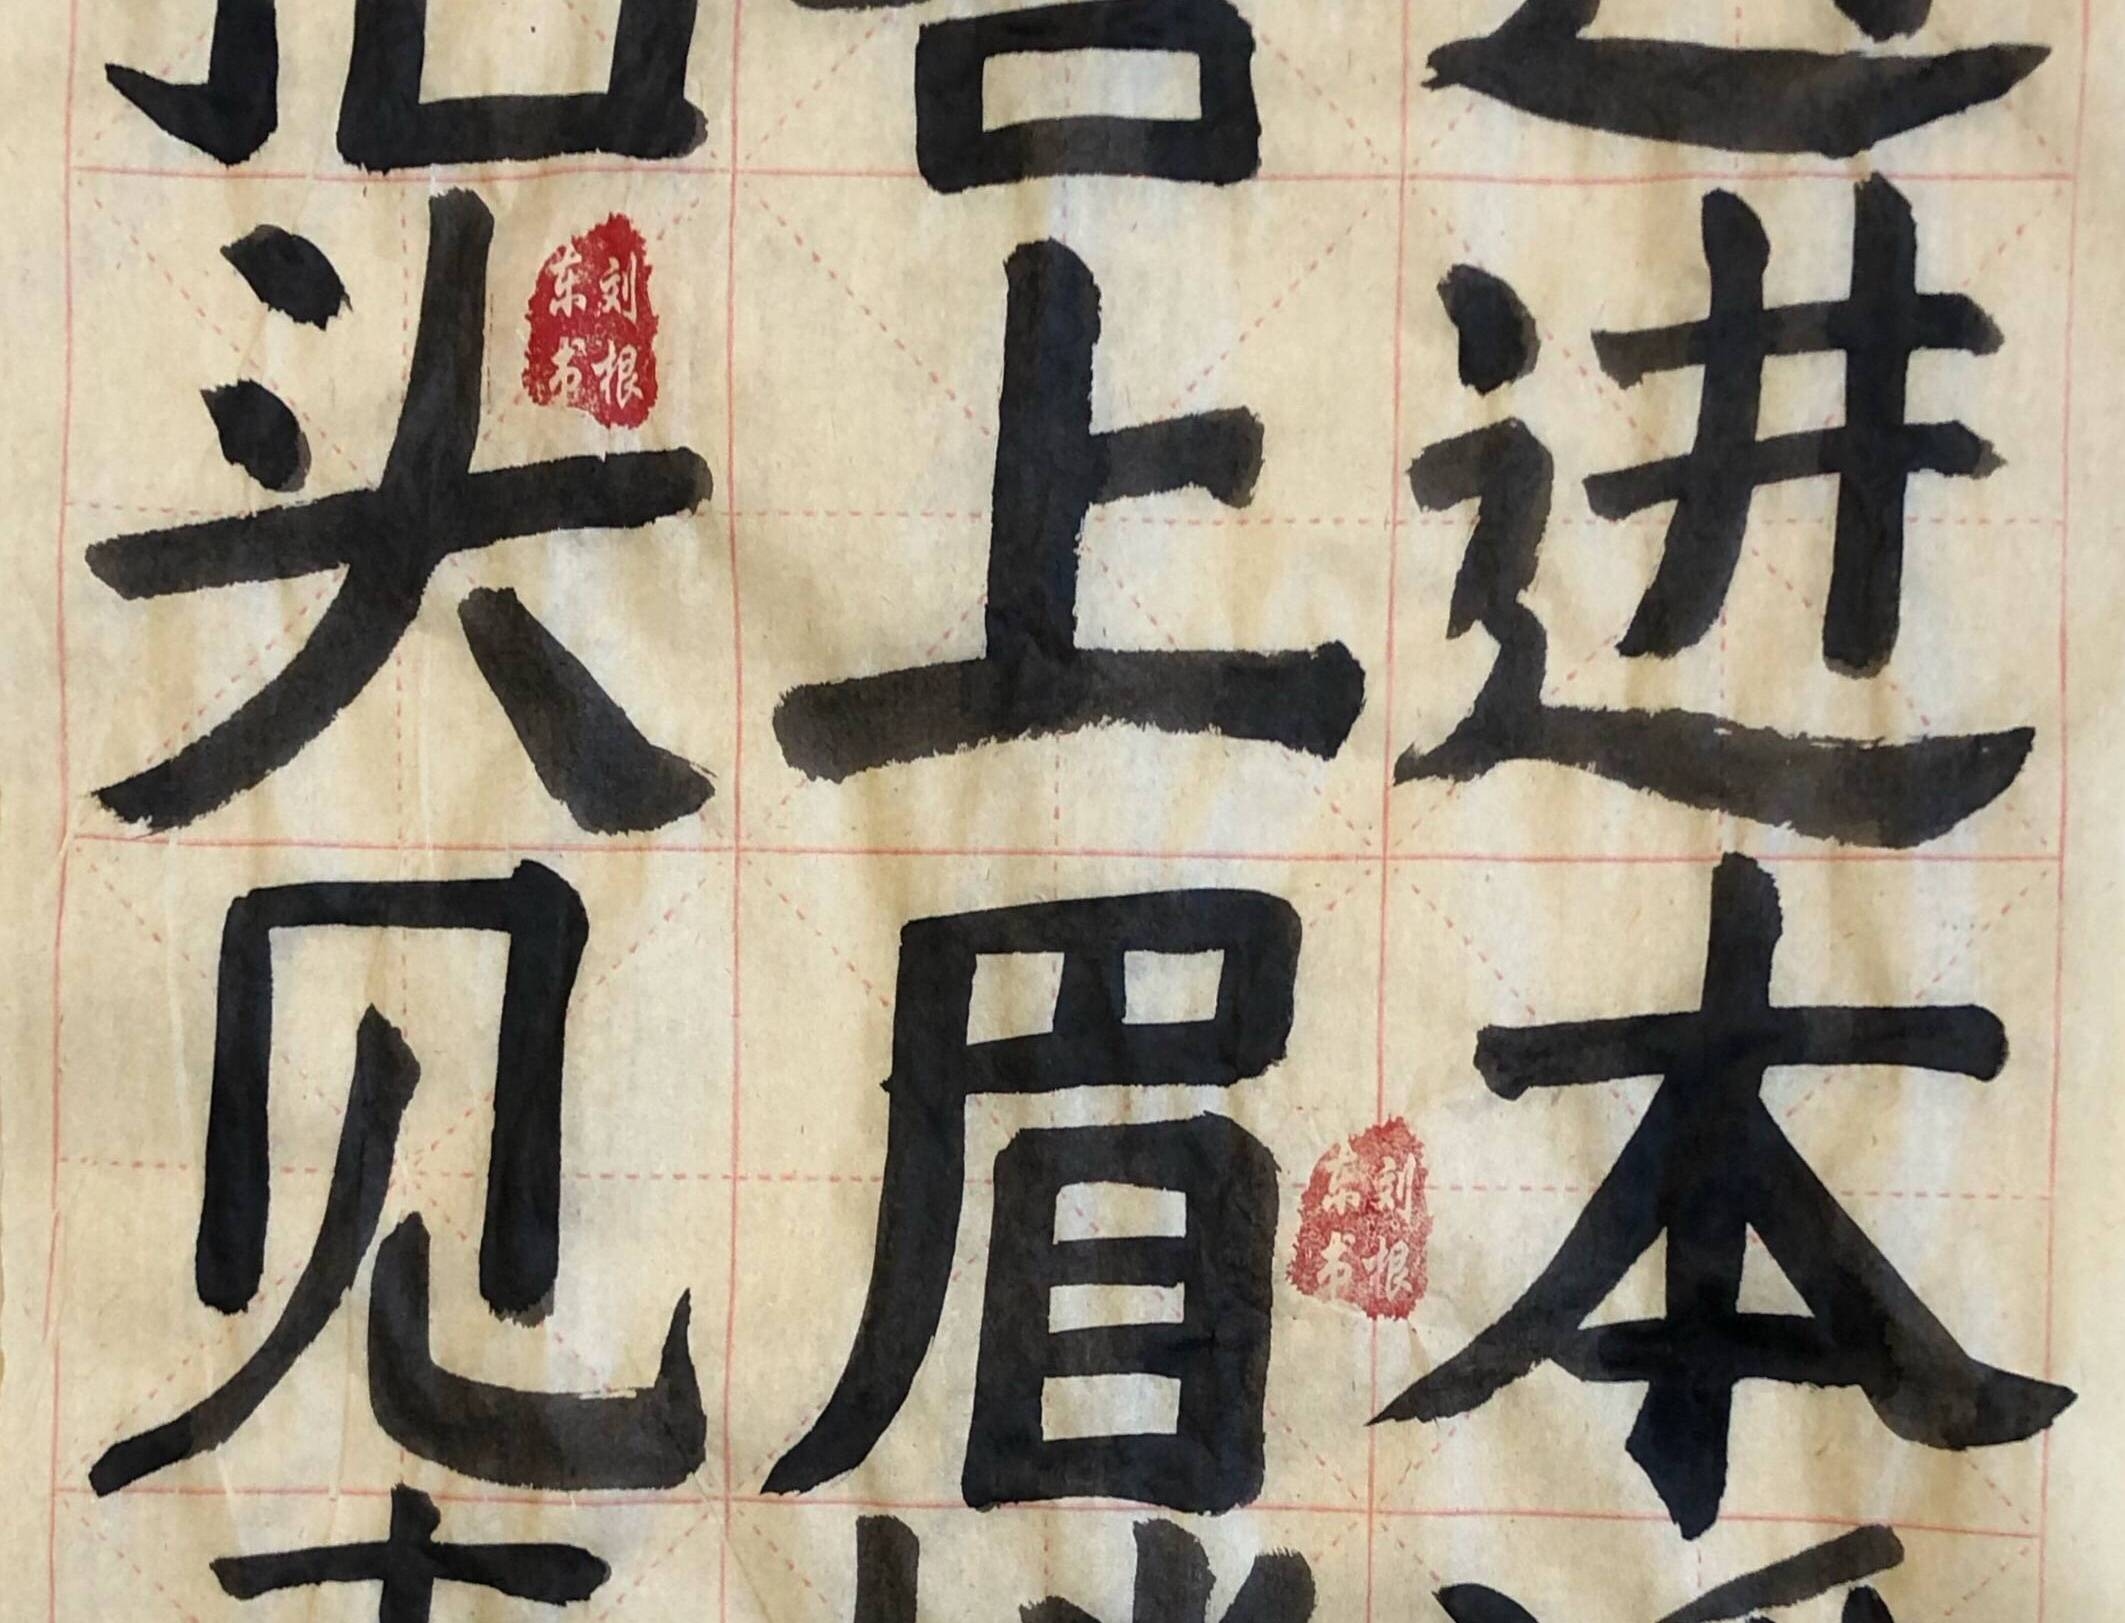 进本
上眉
头见
刘根
东书
刘根
东书